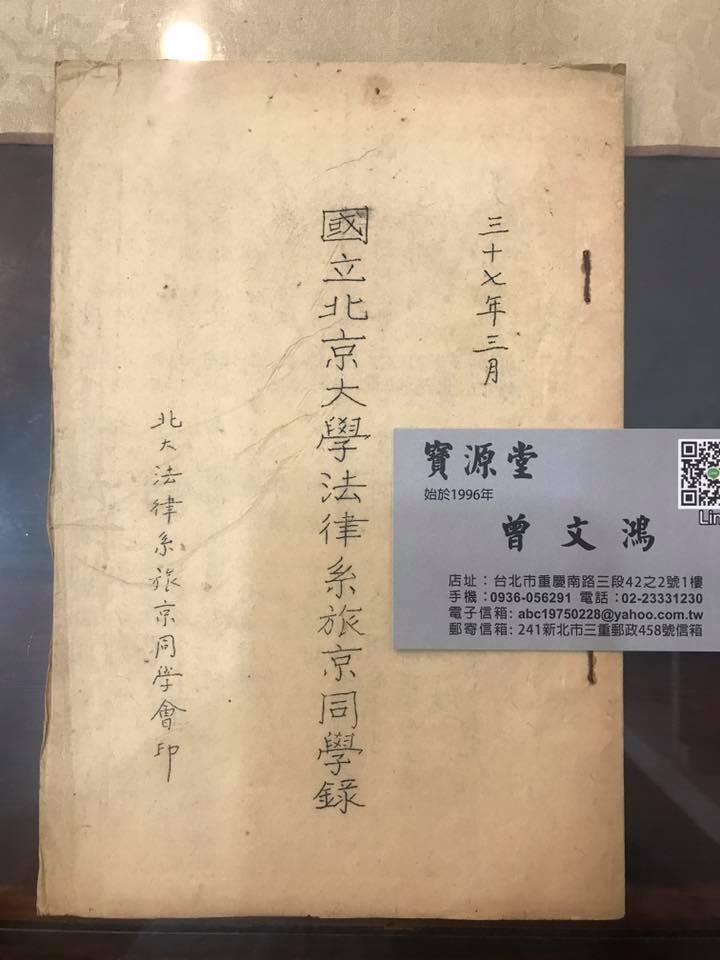 三十七年三月
國立北京大學法律系旅京同學錄
北大法律系旅京同学會印
寶源堂
始於1996年
曾文鴻
店址：台北市重慶南路三段42之2號1樓
手機：0936-056291 電話：02-23331230
電子信箱：abc19750228@yahoo.com.tw
郵寄信箱：241新北市三重郵政458號信箱